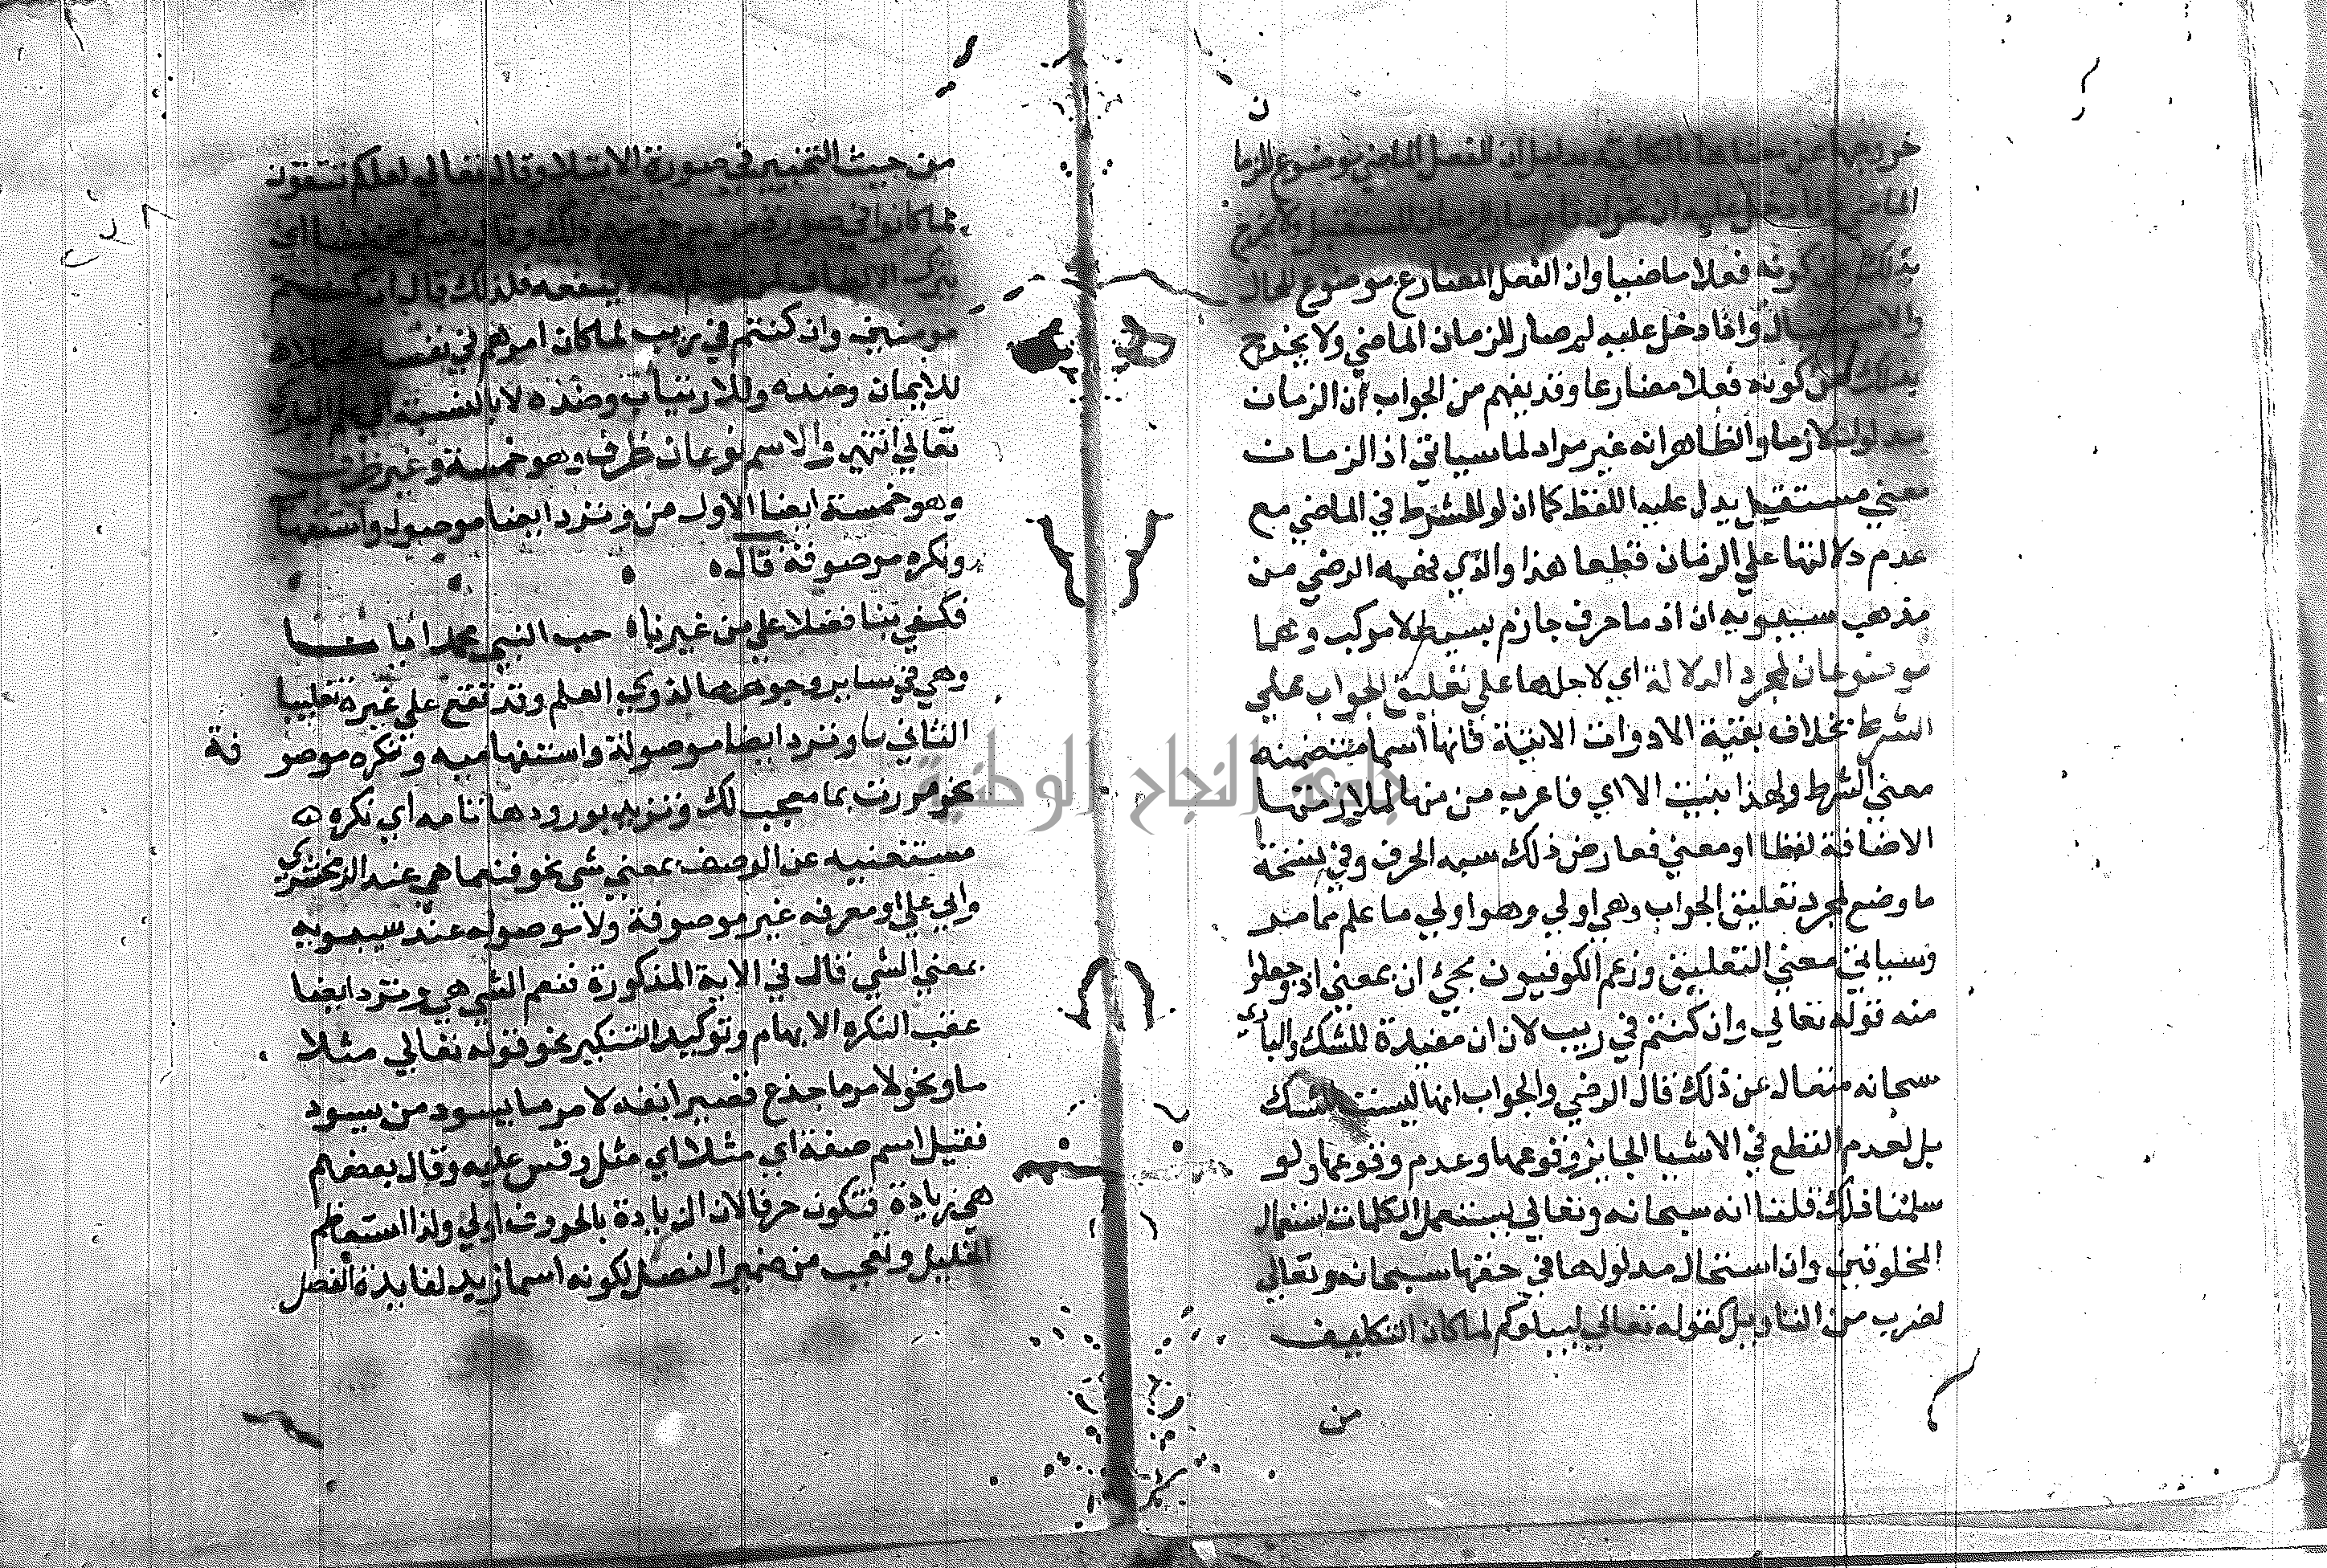 ن
خروجها عن معناها بالكلية بدليل ان الفعل الماضي موضوع للزما
الماضي واذا دخل عليه ان نحو ان قام صار لزمان المستقبل ولا يخرج
بذلك عن كونه فعلا ماضيا وان الفعل المضارع موضوع للحال
والاستقبال واذا دخل عليه لم صار للزمان الماضي ولا يخرج
بذلك عن كونه فعلا مضارعا وقد يفهم من الجواب ان الزمان
مدلول لازما والظاهر انه غير مراد لما سياتي اذ الزمان
معني مستقبل يدل عليه اللفظ كما ان لو للشرط في الماضي مع
عدم دلالتها علي الزمان قطعا هذا والذي فهمه الرضي من
مذهب سيبويه ان اذ ما حرف جازم بسيط لا مركب وهما
موضوعان لمجرد الدلالة اي لاجلها علي تعليق الجواب علي
الشرط بخلاف بقية الادوات الاتية فانها اسما متضمنه
معني الشرط ولهذا بنيت الا اي فاعرب من منها لملازمتها
الاضافة لفظا او معني فعارض ذلك شبه الحرف وفي نسخة
ما وضع لمجرد تعليق الجواب وهي اولي وهو اولي ما علم مما مر
وسياتي معني التعليق وزعم الكوفيون مجئ ان بمعني اذ وجعلوا
منه قوله تعالي وان كنتم في ريب لان ان مفيدة للشك والباري
سبحانه متعال عن ذلك قال الرضي والجواب انها ليست للشك
بل لعدم القطع في الاشيا الجايز وقوعها وعدم وقوعها ولو
سلمنا ذلك قلنا انه سبحانه وتعالي يستعمل الكلمات استعمال
المخلوقين وان استحال مدلولها في حقه سبحانه وتعالي
لضرب من التاويل كقوله تعالي ليبلوكم لما كان التكليف
من
من حيث التخيير في صورة الابتلا وقال تعالي لعلكم تتقون
لما كانوا في صورة من يرجي منه ذلك وقال بعض
بترك الانصاف لا ينفعه فلذلك قال ان كنتم
مومنين وان كنتم في ريب لما كان امرهم في نفسه محتملا
للايمان وضده وللارتياب وضده لا بالنسبة الي علم الباري
تعالي انتهي والاسم نوعان ظرف وهو خمسة وغير ظرف
وهو خمسة ايضا الاول من وترد ايضا موصول واستفها
ونكره موصوفة قال
فكفي بنا فضلا علي من غيرنا حب النبي محمد ايانا
وهي في ساير وجوهها لذوي العلم وقد تقع علي غيره تغليبا
الثاني ما وترد ايضا موصولة واستفهاميه ونكره موصو فة
نحو مررت بما معجب لك وتزيد بورودها تامه اي نكره
مستغنيه عن الوصف بمعني شي نحو فنعما هي عند الزمخشري
وابي علي او معرفه غير موصوفة ولا موصوله عند سيبويه
بمعني الشي قال في الاية المذكورة فنعم الشي هي وترد ايضا
عقب النكره الابهام وتوكيد التنكير نحو قوله تعالي مثلا
ما ونحو لامر ما جذع قصير انفه لامر ما يسود من يسود
فقيل اسم صفة اي مثلا اي مثل وقس عليه وقال بعضهم
هي زيادة فتكون حرفا لان الزيادة بالحروف اولي ولذا استعظم
الخليل وتعجب من ضمير الفصل لكونه اسما زيد لفايدة الفصل
جامعة النجاح الوطنية